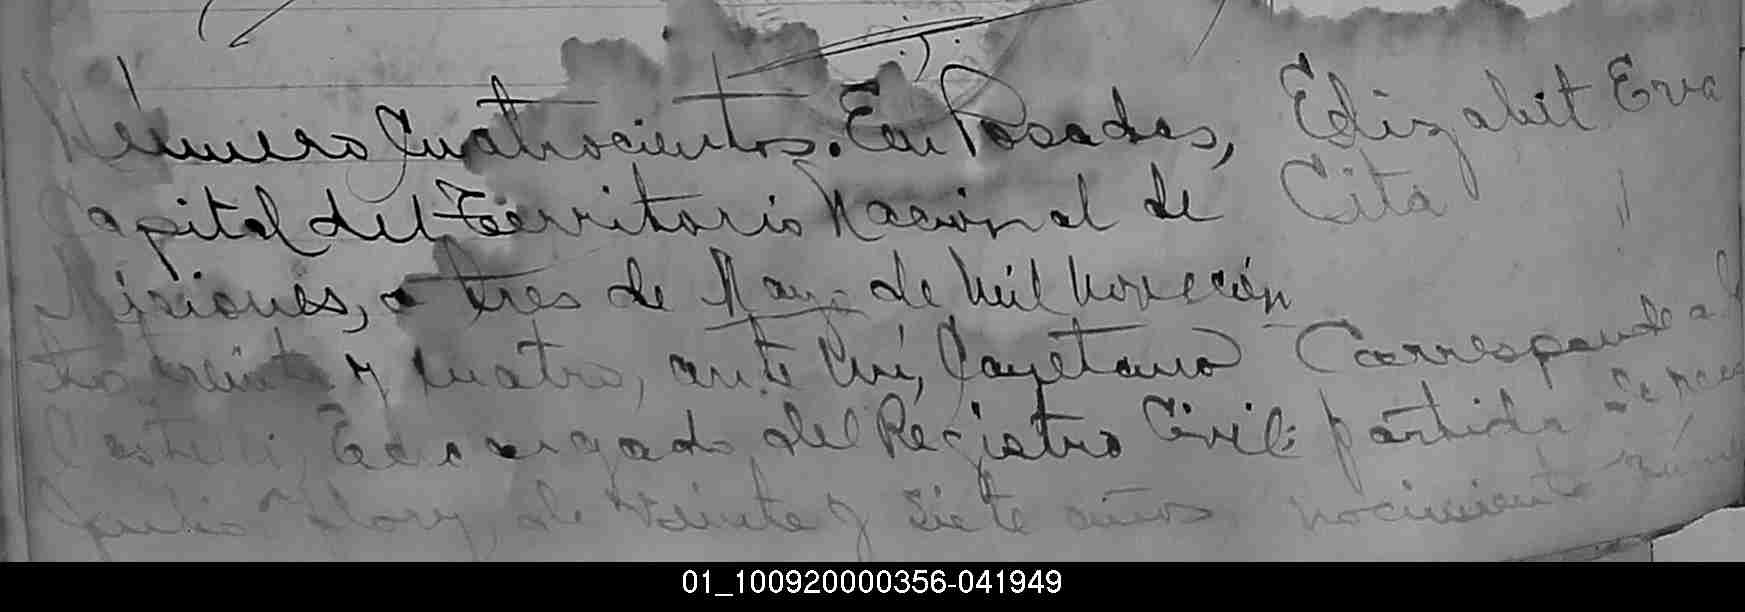 Número Cuatrocientos. En Posadas,
Capital del Territorio Nacional de
Misiones, a tres de Mayo de mil novecien
tos treinta y cuatro, ante mí, Cayetano
Encargado del Registro Civil;
Julio de veinte y siete años,
Elizabit Eva
Cita
Corresponde al
partida
nacimiento
01_100920000356-041949